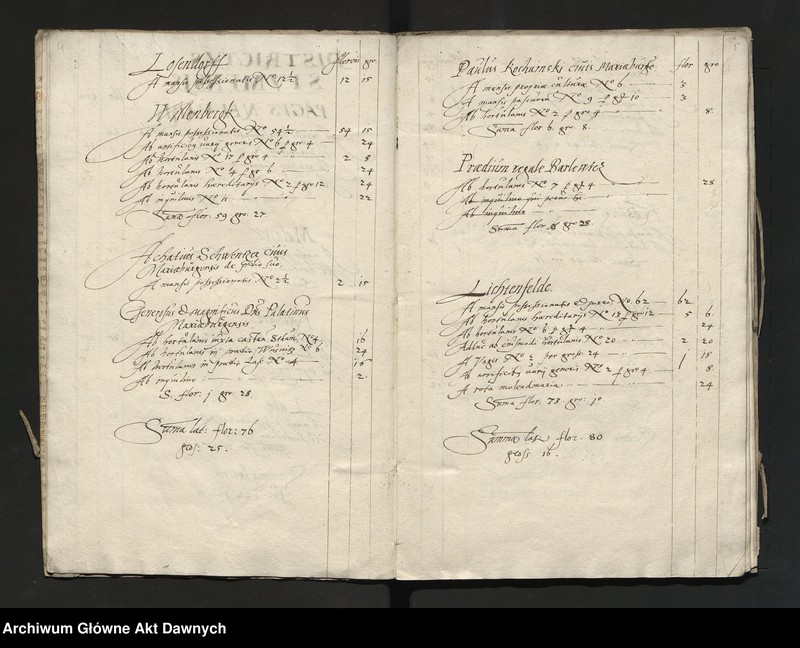 Losendorff floreni gr
A mansis possessionatis No 12½ 12 15
Willenbergk
A mansis possessionatis No 54½ 54 15
Ab artificibus varij generis No 6 p gr 4 24
Ab hortulanis No 17 p gr 4 2 8
Ab hortulanis No 4 p gr 6 24
Ab hortulanis hæreditarijs No 2 p gr 12 24
Ab inquilinis No 11 22
Suma flor 59 gro: 27
Achatius Schwenker civis
Mariæburgensis de
A mansis possessionatis No 2½ 2 15
Generosus et magnificus Dns Palatinus
Mariæburgensis
Ab hortulanis iuxta No 4 16
Ab hortulanis in prædio No 6 24
Ab hortulanis in prædio No 4 16
Ab inquilino 2
S. flor: j gro: 28
Suma lat: flor: 76
gros: 25.
Paulus Kochanski civis Mariæburge flor gro
A mansis propriæ culturæ No 6 3
A mansis No 9 p gr 10 3
Ab hortulanis No 2 p gro 4 8
Suma flor 6 gr: 8.
Prædium regale Barlentz
Ab hortulanis No 7 p gr 4 28
Ab inquilinis
Ab inquilino
Suma flor gro 28.
Lichtenfelde
A mansis possessionatis No. 62 62
Ab hortulanis hæreditarijs No 13 p gr 12 5 6
Ab hortulanis No 6 p gr 4 24
Adhuc ab eiusmodi hortulanis No 20 2 20
A No 2 per gross 24 1 18
Ab artificibus varij generis No 2 p gro 4 8
A rota molendinaria 24
Suma flor: 73. gro: 10
Summa lat. flor. 80
gross 16.
Archiwum Główne Akt Dawnych